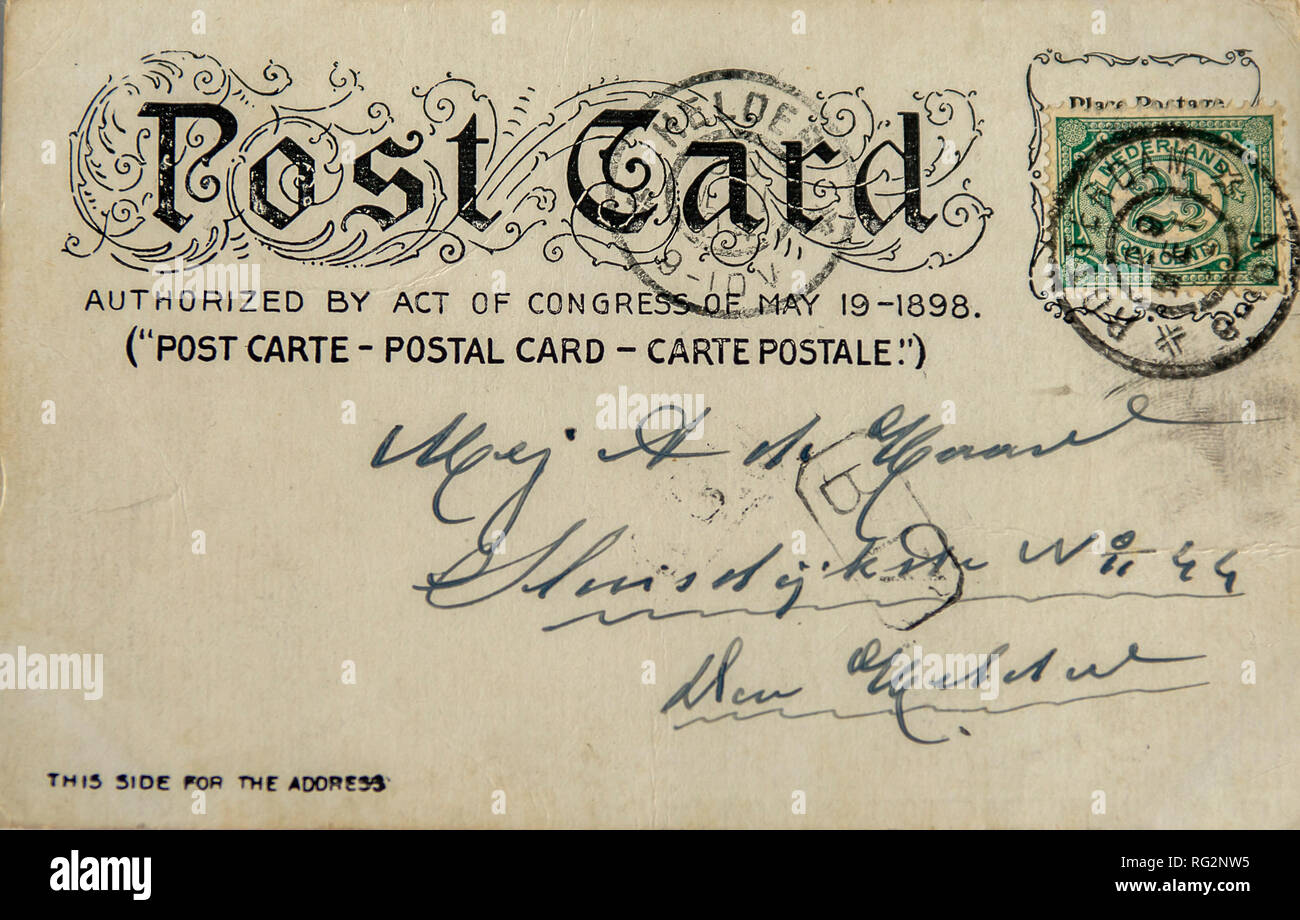 Post Card
AUTHORIZED BY ACT OF CONGRESS OF MAY 19-1898.
("POST CARTE - POSTAL CARD - CARTE POSTALE.")
Place Postage
NEDERLAND
2½
CENT
HELDER
9-10V
ROTTERDAM
Mej A de Haas
Sluisdijkstr No 44
Den Helder
THIS SIDE FOR THE ADDRESS
a alamy stock photo
Image ID: RG2NW5
www.alamy.com